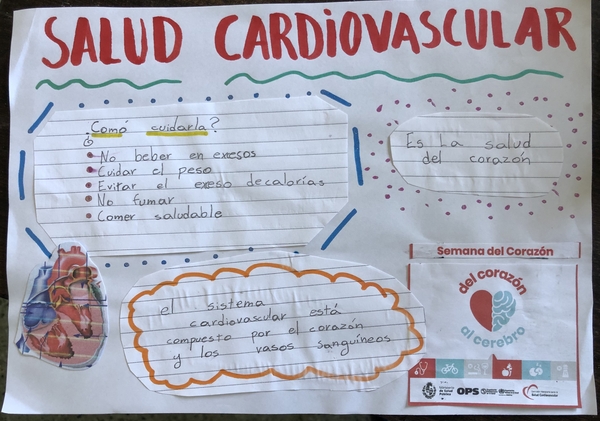 SALUD CARDIOVASCULAR
¿Comó cuidarla?
• No beber en exesos
• Cuidar el peso
• Evitar el exeso de calorías
• No fumar
• Comer saludable
Es La salud
del corazón
el sistema
cardiovascular está
compuesto por el corazón
y los vasos sanguíneos
Semana del Corazón
del corazón
al cerebro
Ministerio
de Salud
Pública
OPS